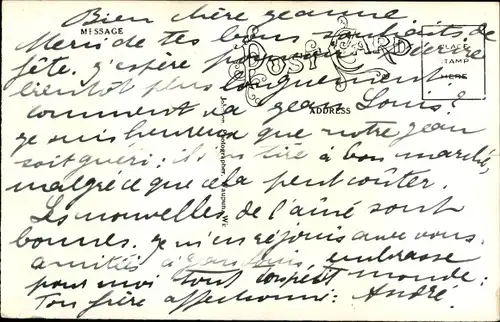 Bien chère Jeanne
MESSAGE
POST CARD
PLACE
STAMP
HERE
Merci de tes bons souhaits de
fête. J'espère pouvoir t'écrire
bientôt plus longuement.
Comment va Jean Louis?
ADDRESS
Je suis heureux que notre Jean
soit guéri: il s'en tire à bon marché,
malgré ce que cela peut coûter.
Les nouvelles de l'aîné sont
bonnes. Je m'en réjouis avec vous.
amitiés embrasse
pour moi tout monde:
Ton frère affectionné: André.